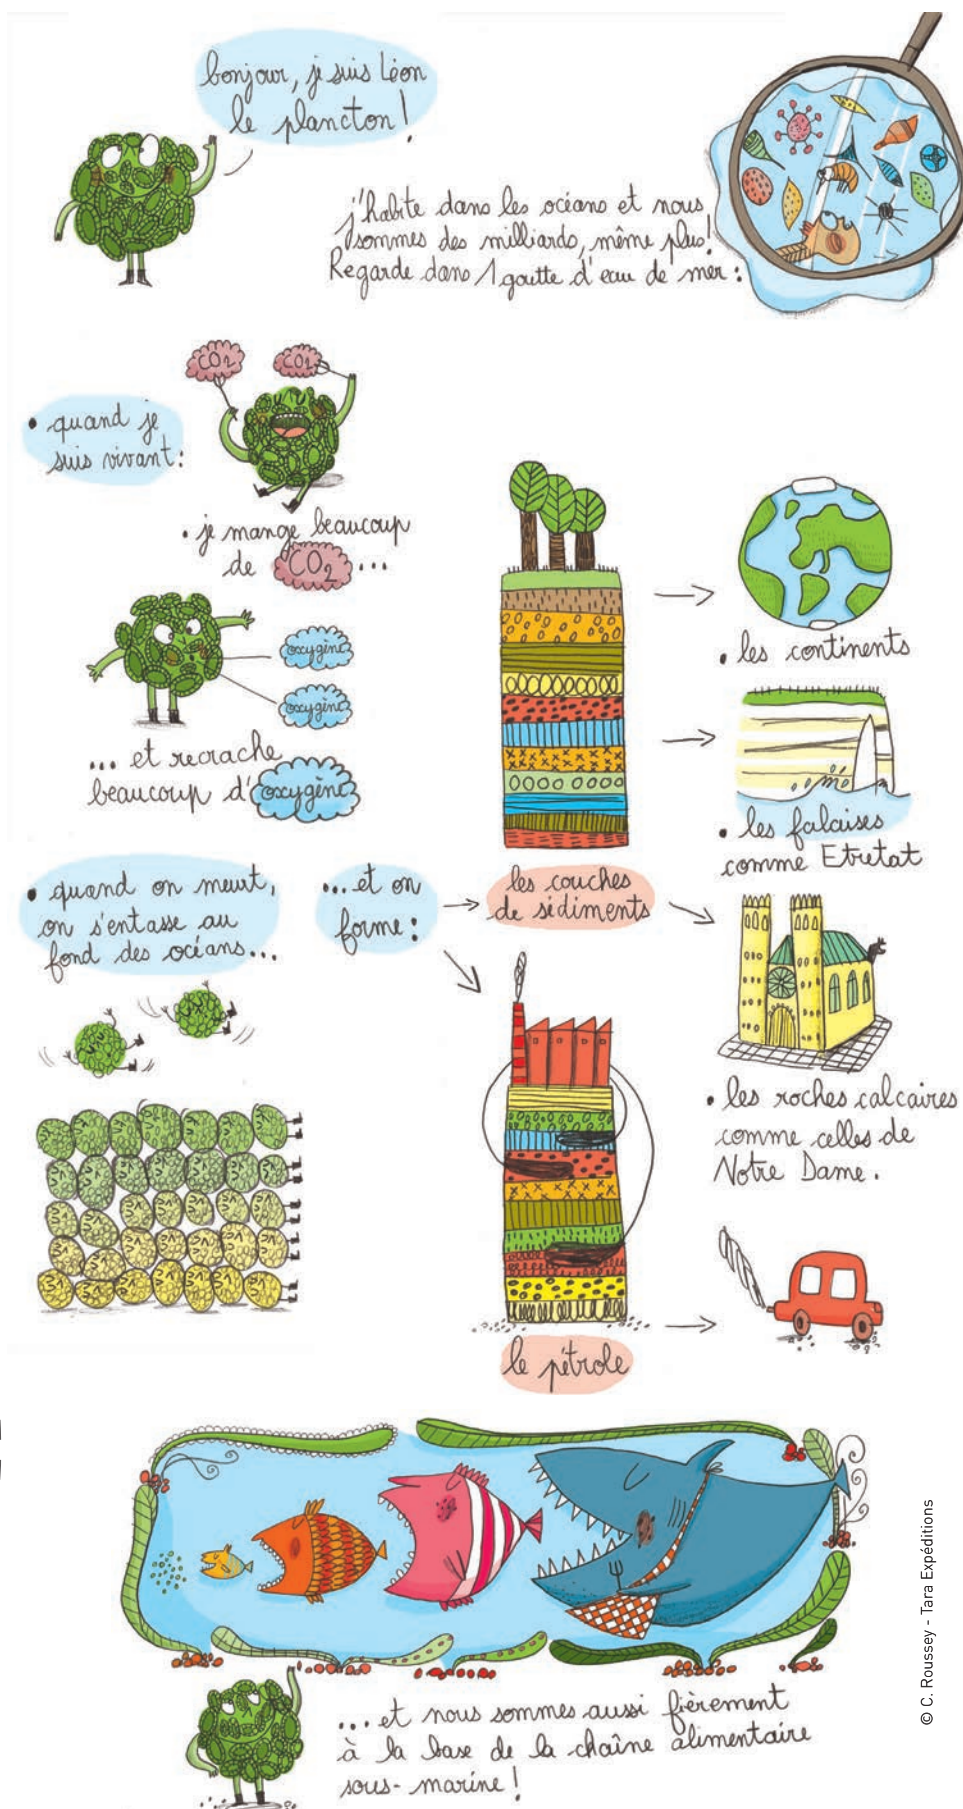 bonjour, je suis Léon
le plancton!
j'habite dans les océans et nous
sommes des milliards, même plus!
Regarde dans 1 goutte d'eau de mer:
CO2
CO2
• quand je
suis vivant:
• je mange beaucoup
de CO2 ...
oxygène
oxygène
... et recrache
beaucoup d'oxygène
• quand on meurt,
on s'entasse au
fond des océans...
...et on
forme:
les couches
de sédiments
• les continents
• les falaises
comme Etretat
• les roches calcaires
comme celles de
Notre Dame.
le pétrole
...et nous sommes aussi fièrement
à la base de la chaîne alimentaire
sous-marine!
© C. Roussey - Tara Expéditions